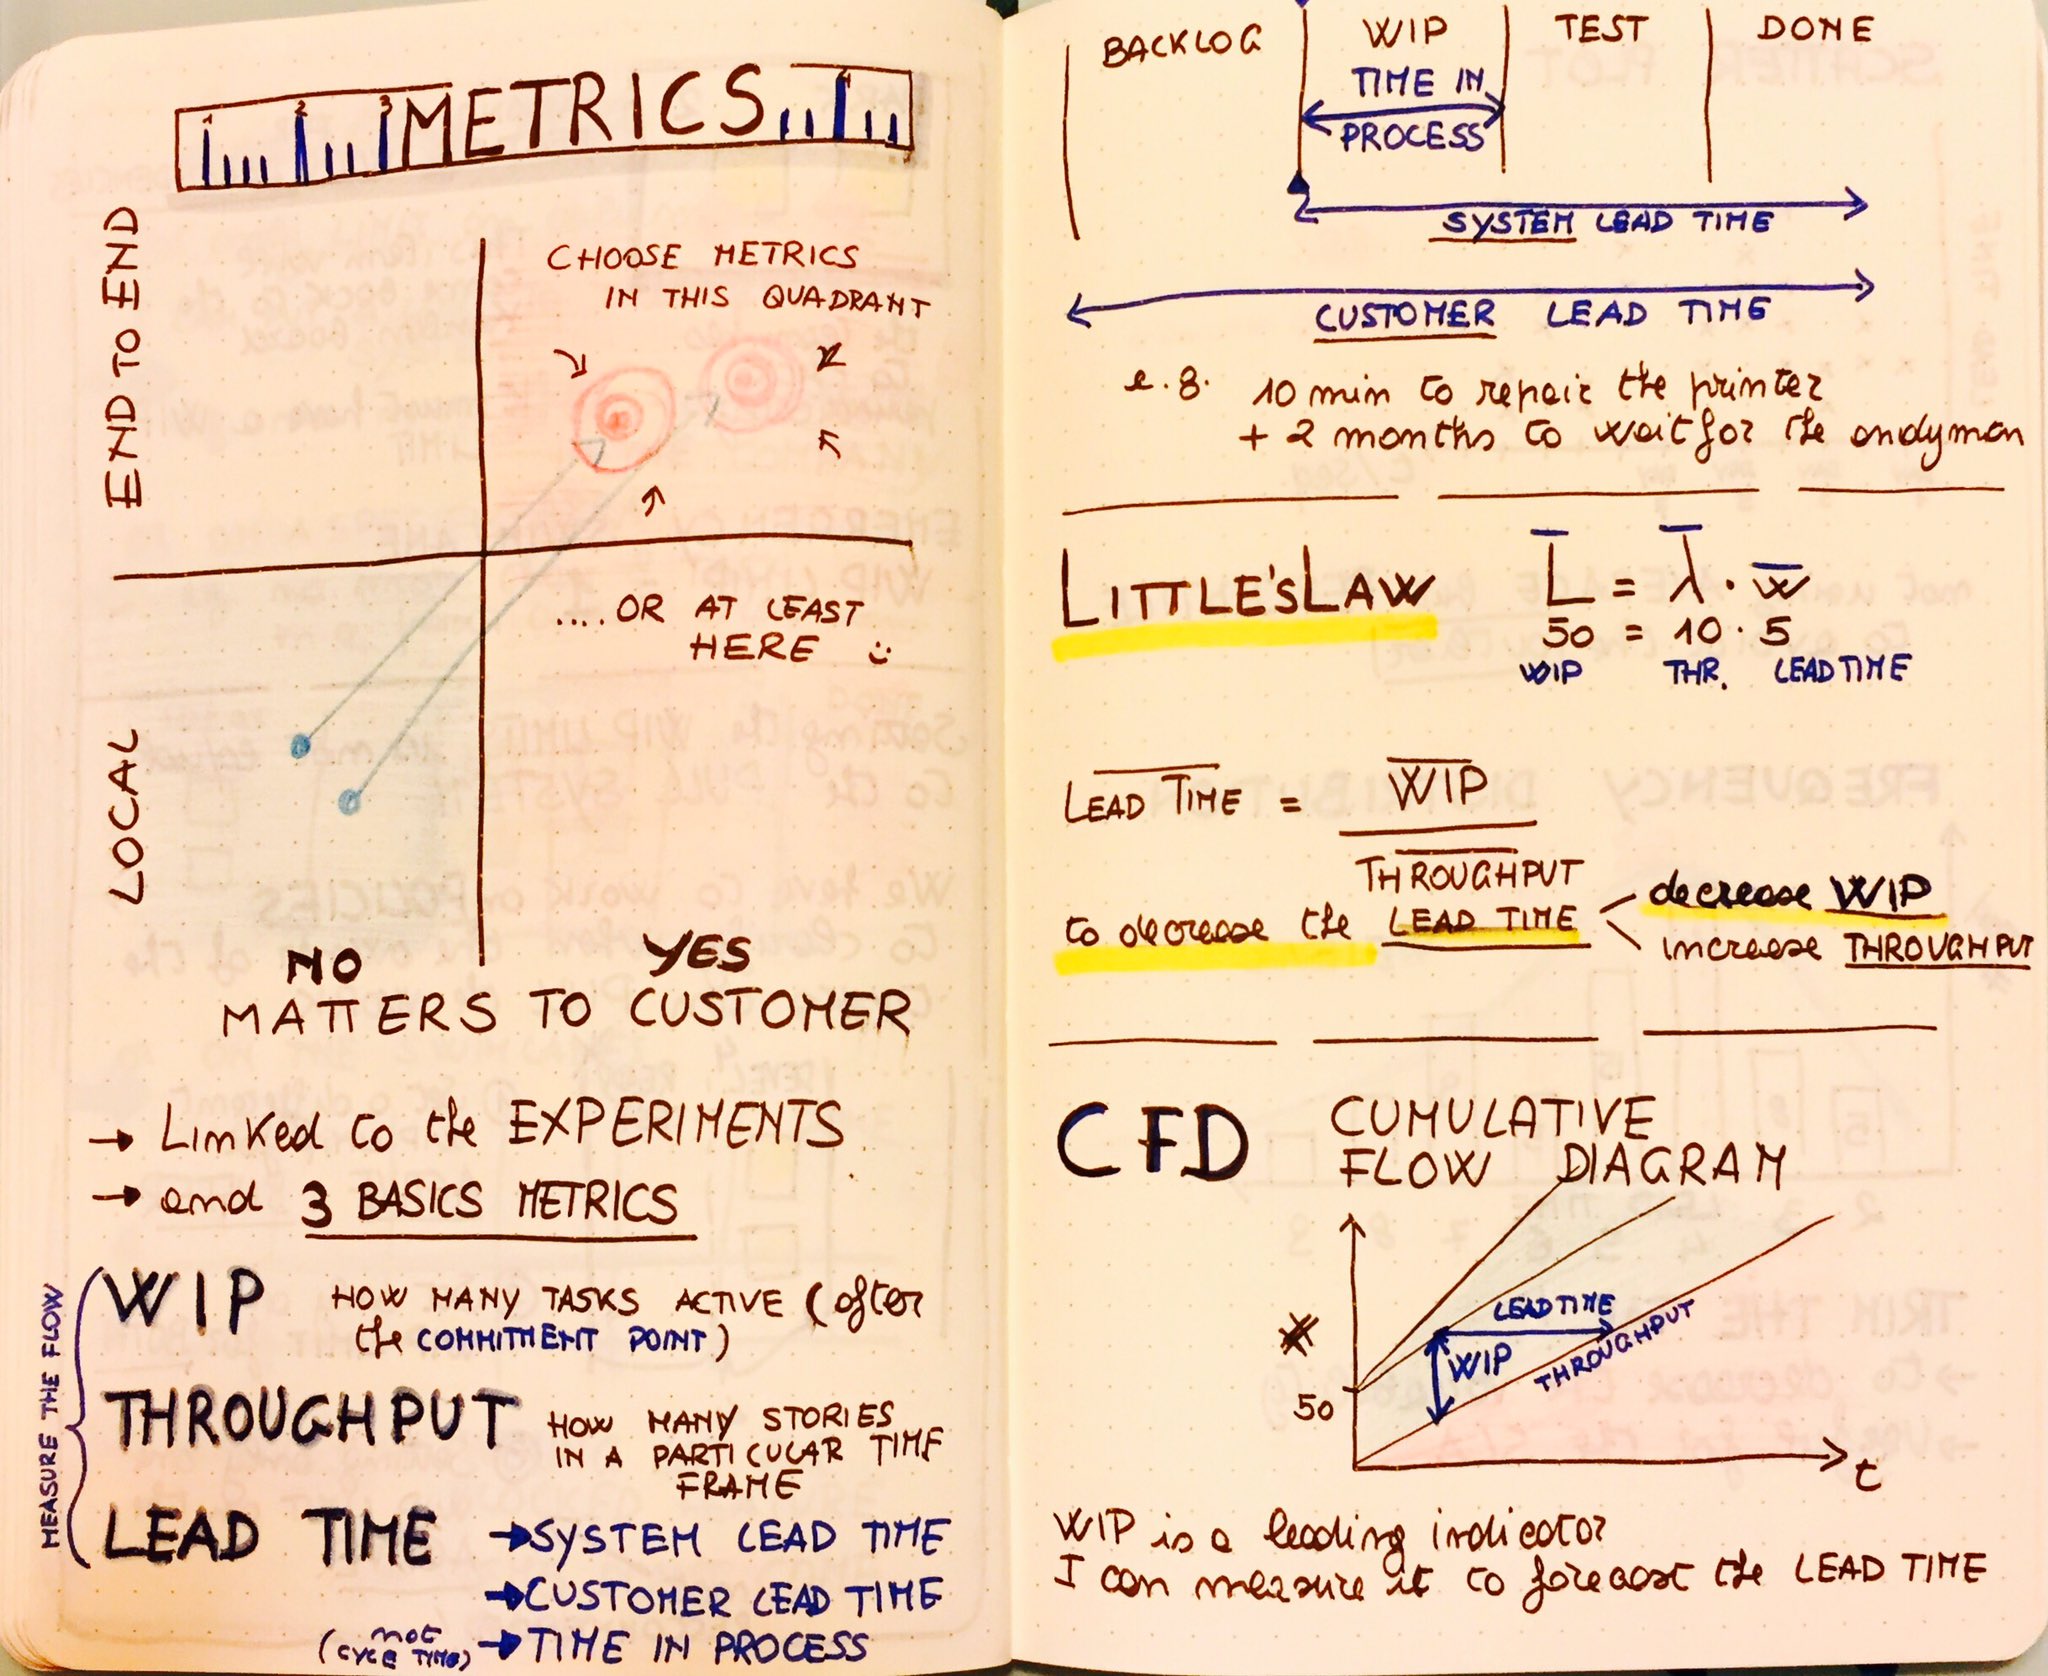 1 2 3 METRICS 4
END TO END
CHOOSE METRICS
IN THIS QUADRANT
....OR AT LEAST
HERE
LOCAL
NO YES
MATTERS TO CUSTOMER
→ Linked to the EXPERIMENTS
→ and 3 BASICS METRICS
MEASURE THE FLOW
WIP HOW MANY TASKS ACTIVE (after
the COMMITMENT POINT)
THROUGHPUT HOW MANY STORIES
IN A PARTICULAR TIME
FRAME
LEAD TIME → SYSTEM LEAD TIME
→ CUSTOMER LEAD TIME
(not CYCLE TIME) → TIME IN PROCESS
BACKLOG WIP TEST DONE
TIME IN
PROCESS
SYSTEM LEAD TIME
CUSTOMER LEAD TIME
e.g. 10 min to repair the printer
+ 2 months to wait for the andyman
LITTLE'S LAW L = λ · w
50 = 10 · 5
WIP THR. LEAD TIME
LEAD TIME = WIP
THROUGHPUT
to decrease the LEAD TIME
decrease WIP
increase THROUGHPUT
CFD CUMULATIVE
FLOW DIAGRAM
LEAD TIME
WIP
THROUGHPUT
50
t
WIP is a leading indicator
I can measure it to forecast the LEAD TIME